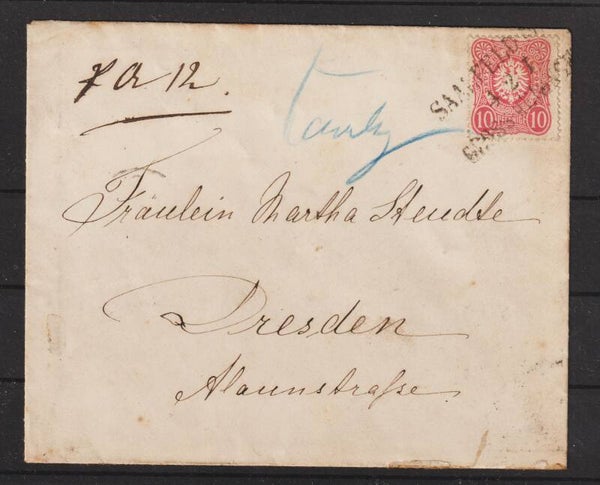 SAALFELD
10 PFENNIG 10
12.
Fräulein Martha Steudte
Dresden
Alaunstraße